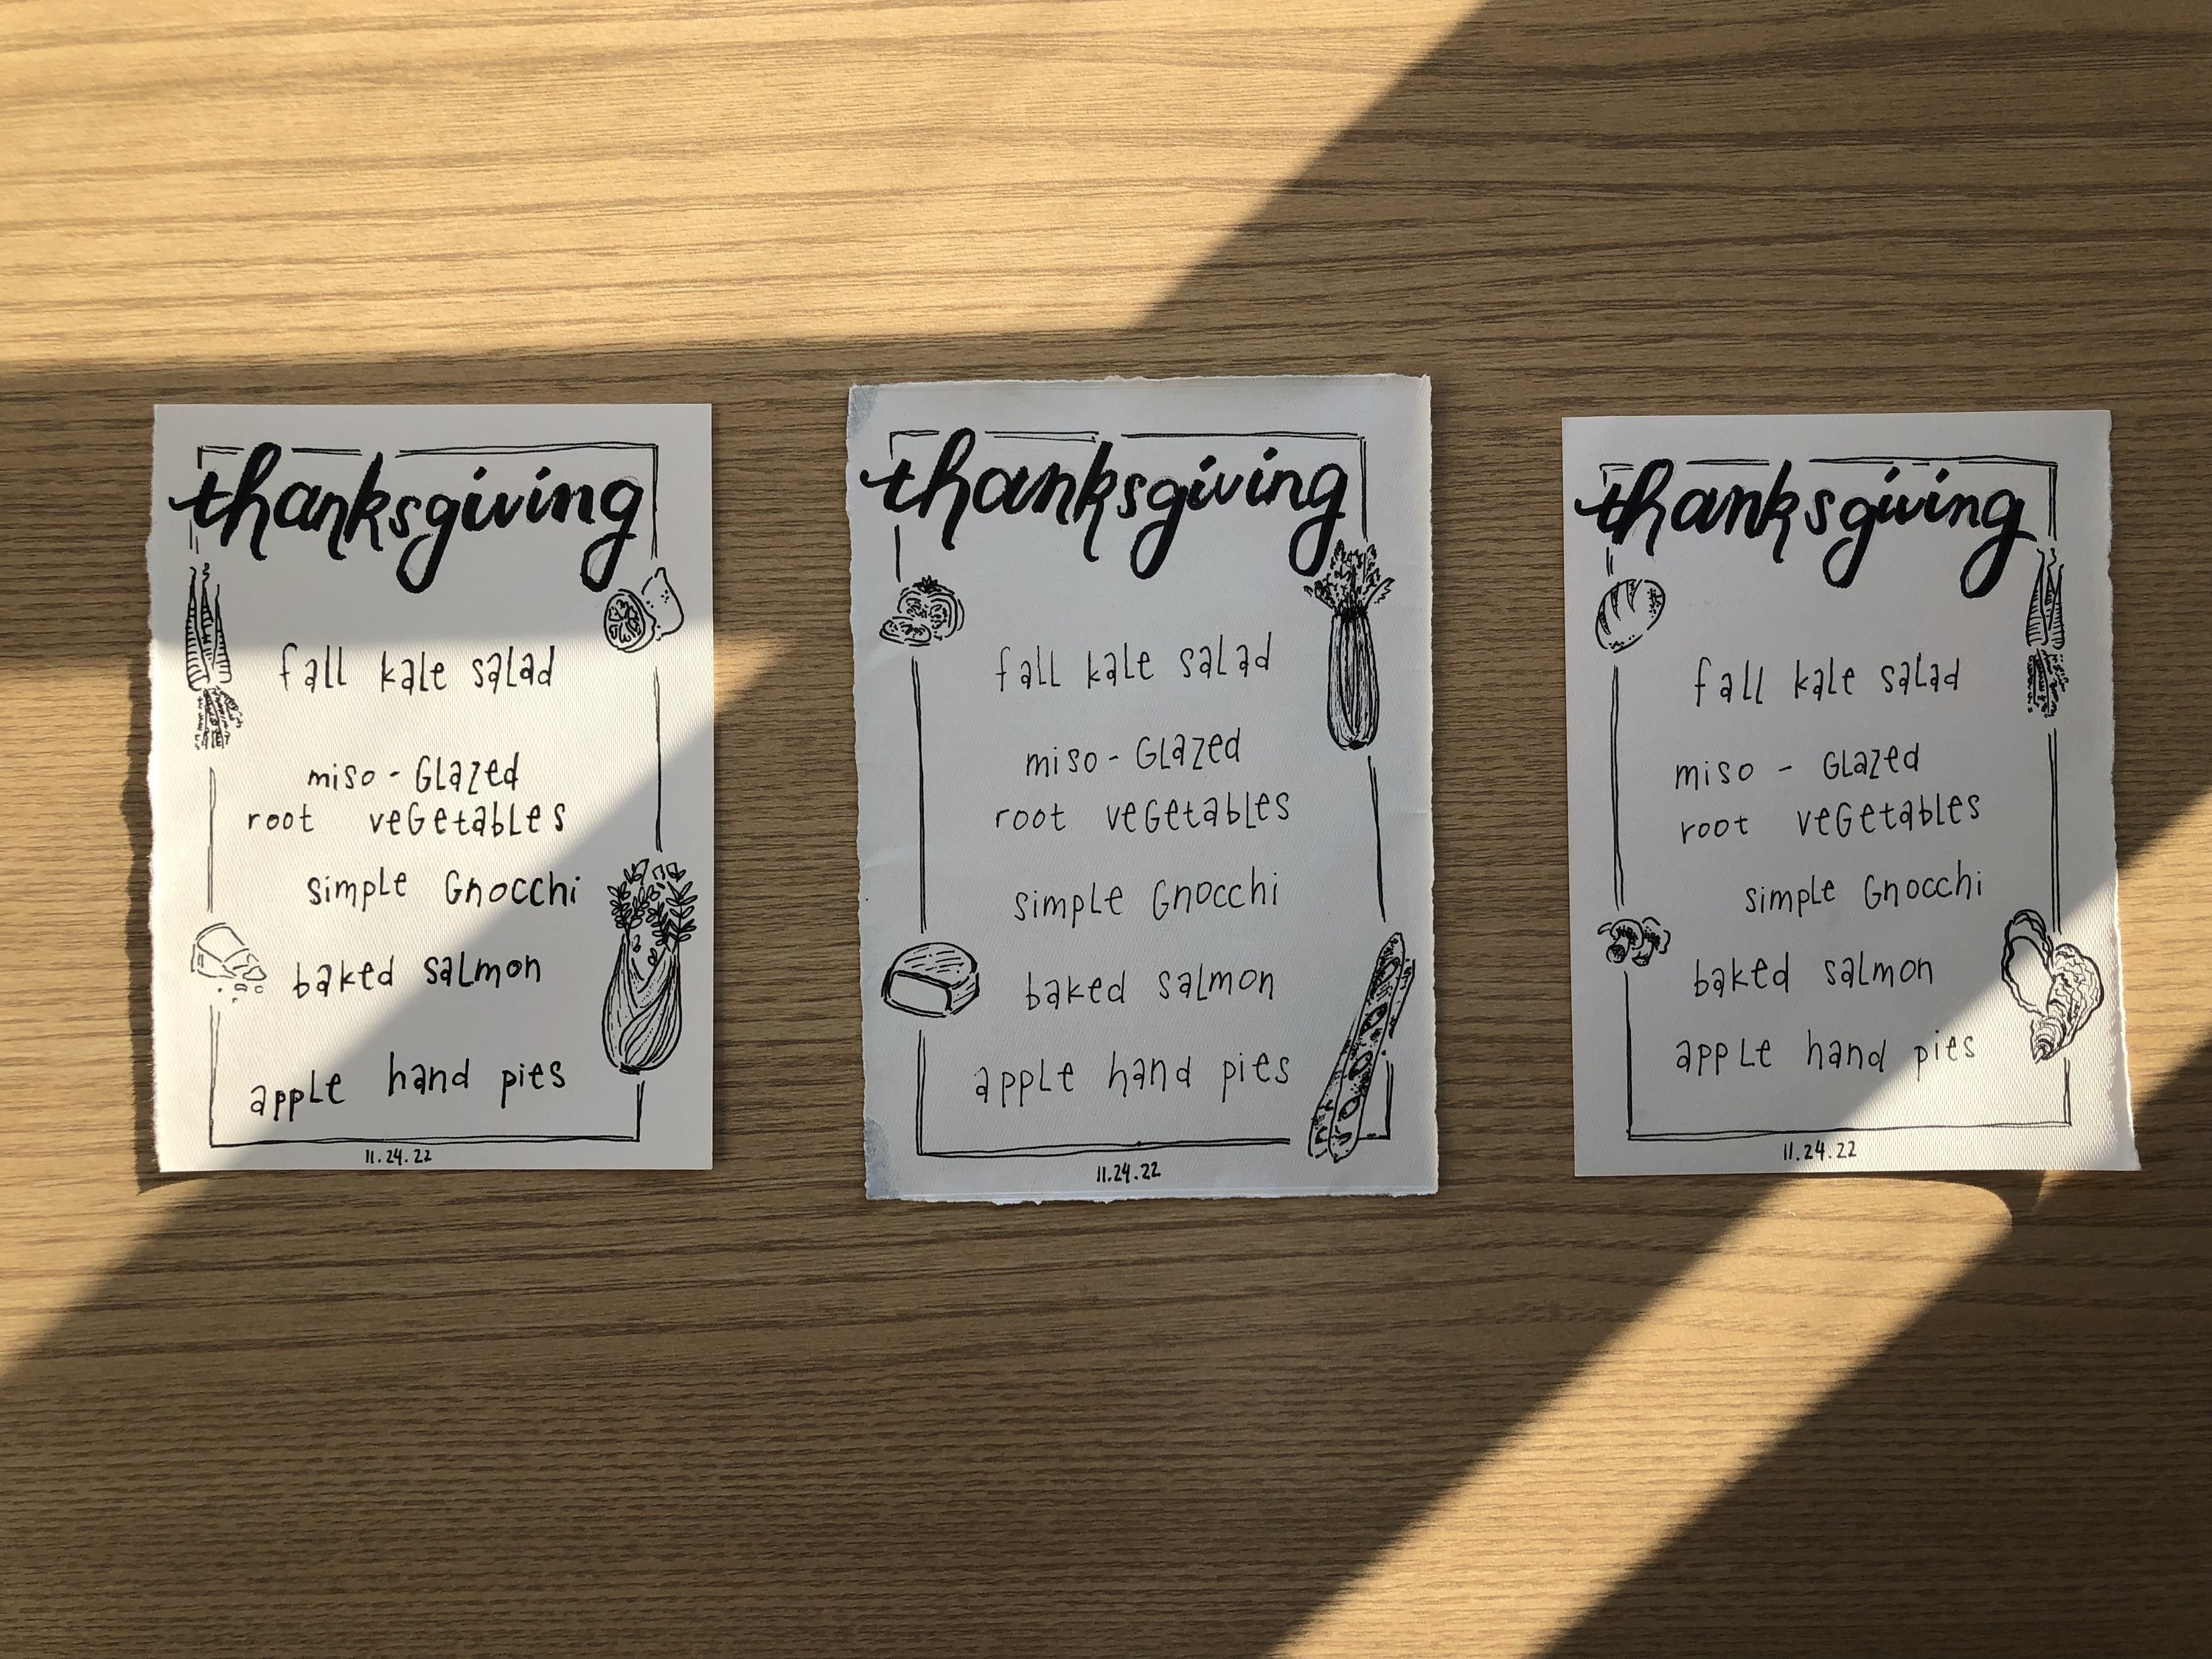 thanksgiving
fall kale salad
miso-Glazed
root veGetabLes
simpLe Gnocchi
baked saLmon
appLe hand pies
11.24.22
thanksgiving
fall kaLe saLad
miso-GLazed
root veGetabLes
simpLe Gnocchi
baked saLmon
appLe hand pies
11.24.22
thanksgiving
fall kaLe saLad
miso - GLazed
root veGetabLes
simpLe Gnocchi
baked saLmon
appLe hand pies
11.24.22